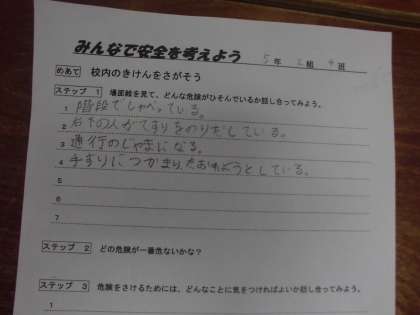 みんなで安全を考えよう
5年2組4班
めあて 校内のきけんをさがそう
ステップ 1 場面絵を見て、どんな危険がひそんでいるか話し合ってみよう。
1 階段でしゃべっている。
2 右下の人がてすりをのりだしている。
3 通行のじゃまになる。
4 手すりにつかまりたおれようとしている。
5
6
7
ステップ 2 どの危険が一番危ないかな?
ステップ 3 危険をさけるためには、どんなことに気をつければよいか話し合ってみよう。
1